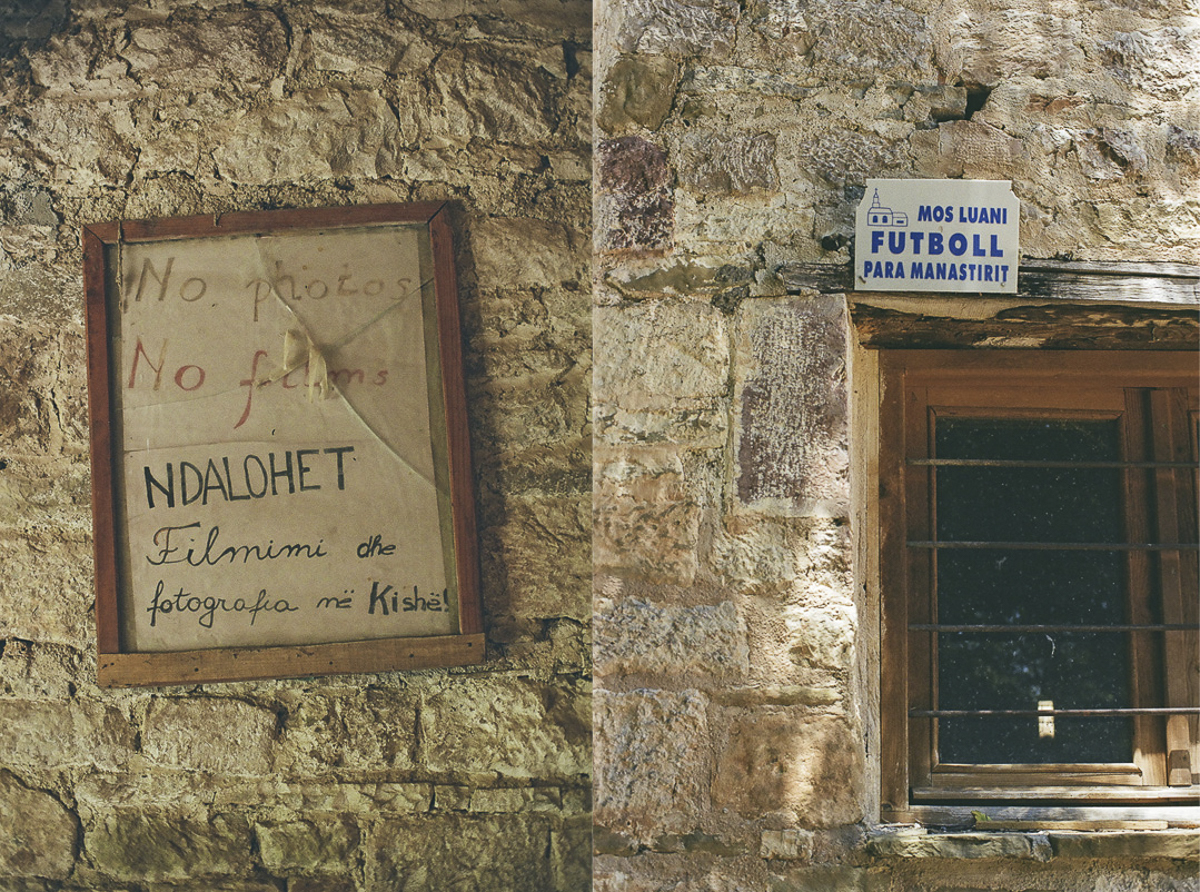 No photos
No films
NDALOHET
Filmimi dhe
fotografia në Kishë!
MOS LUANI
FUTBOLL
PARA MANASTIRIT